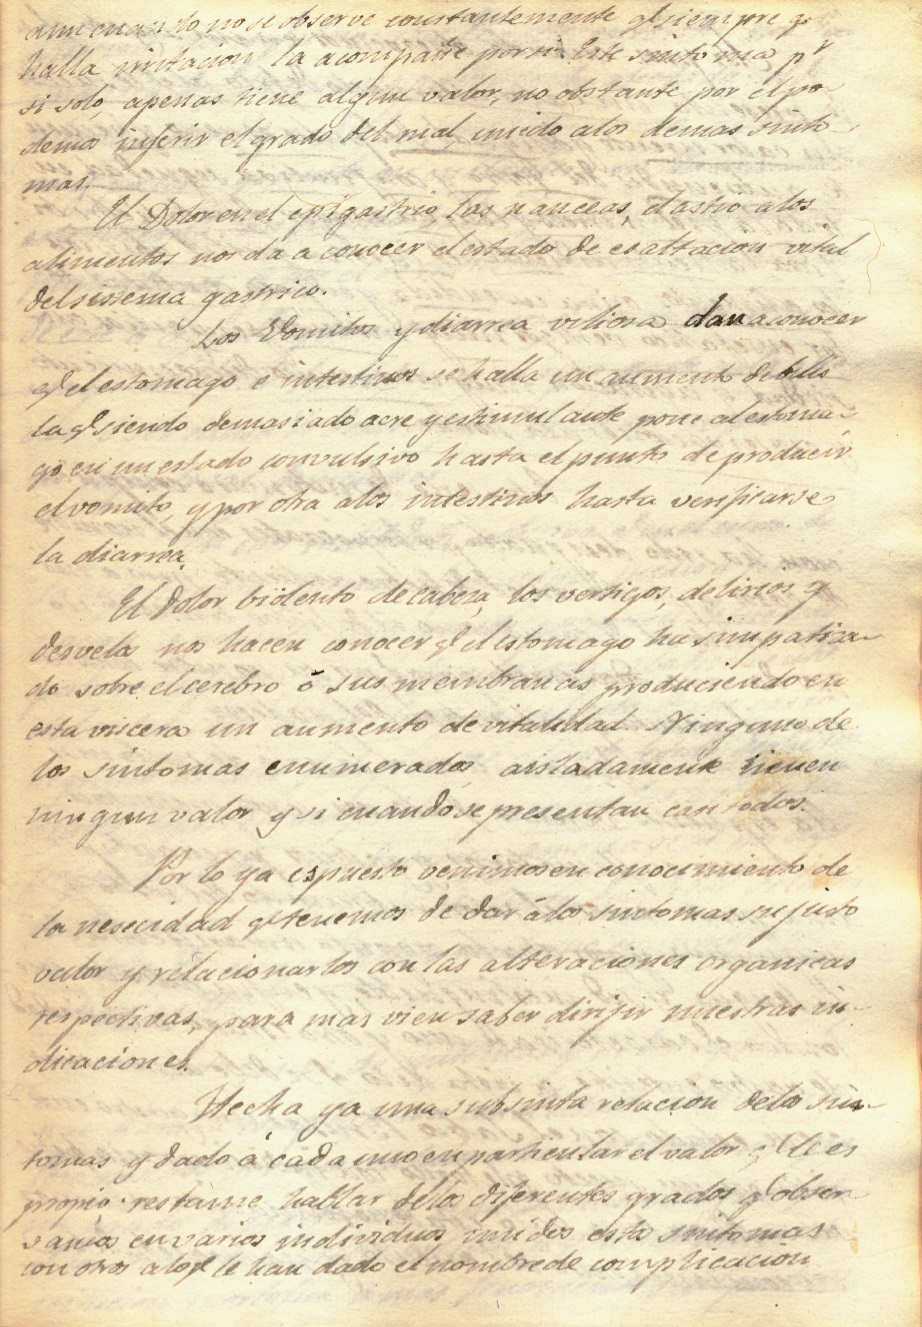 aun cuando no se observe constantemente qe siempre qe
halla irritacion la acompañe por si. Este sintoma pr
si solo, apenas tiene algun valor, no obstante por el po-
demos inferir el grado del mal, unido a los demas sinto
mas.
El Dolor en el epigastrio, las nauceas, el astio a los
alimentos nos da a conocer el estado de esaltacion vital
del sistema gastrico.
Los Vomitos y diarrea viliosa dan a conocer
qe el estomago e intestinos se halla un aumento de bilis
la qe siendo demasiado acre y estimulante pone al estoma-
go en un estado convulsivo hasta el punto de producir
el vomito, y por otra a los intestinos hasta verificarse
la diarrea.
El Dolor biolento de cabeza, los vertigos, delirios y
desvelos nos hacen conocer qe el estomago ha simpatiza-
do sobre el cerebro ó sus membranas produciendo en
esta viscera un aumento de vitalidad. Ninguno de
los sintomas enumerados aisladamente tienen
ningun valor y si cuando se presentan con todos.
Por lo ya espuesto venimos en conocimiento de
la nesecidad qe tenemos de dar á los sintomas su justo
valor y relacionarlos con las alteraciones organicas
respectivas, para mas vien saber dirijir nuestras in-
dicaciones.
Hecha ya una subsinta relacion de los sin-
tomas y dado á cada uno en particular el valor qe le es
propio restame hablar de los diferentes grados qe obser-
vamos en varios individuos unidos estos sintomas
con otros a los qe le han dado el nombre de complicacion